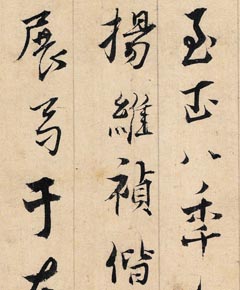 至正八秊
楊維禎偕
展于